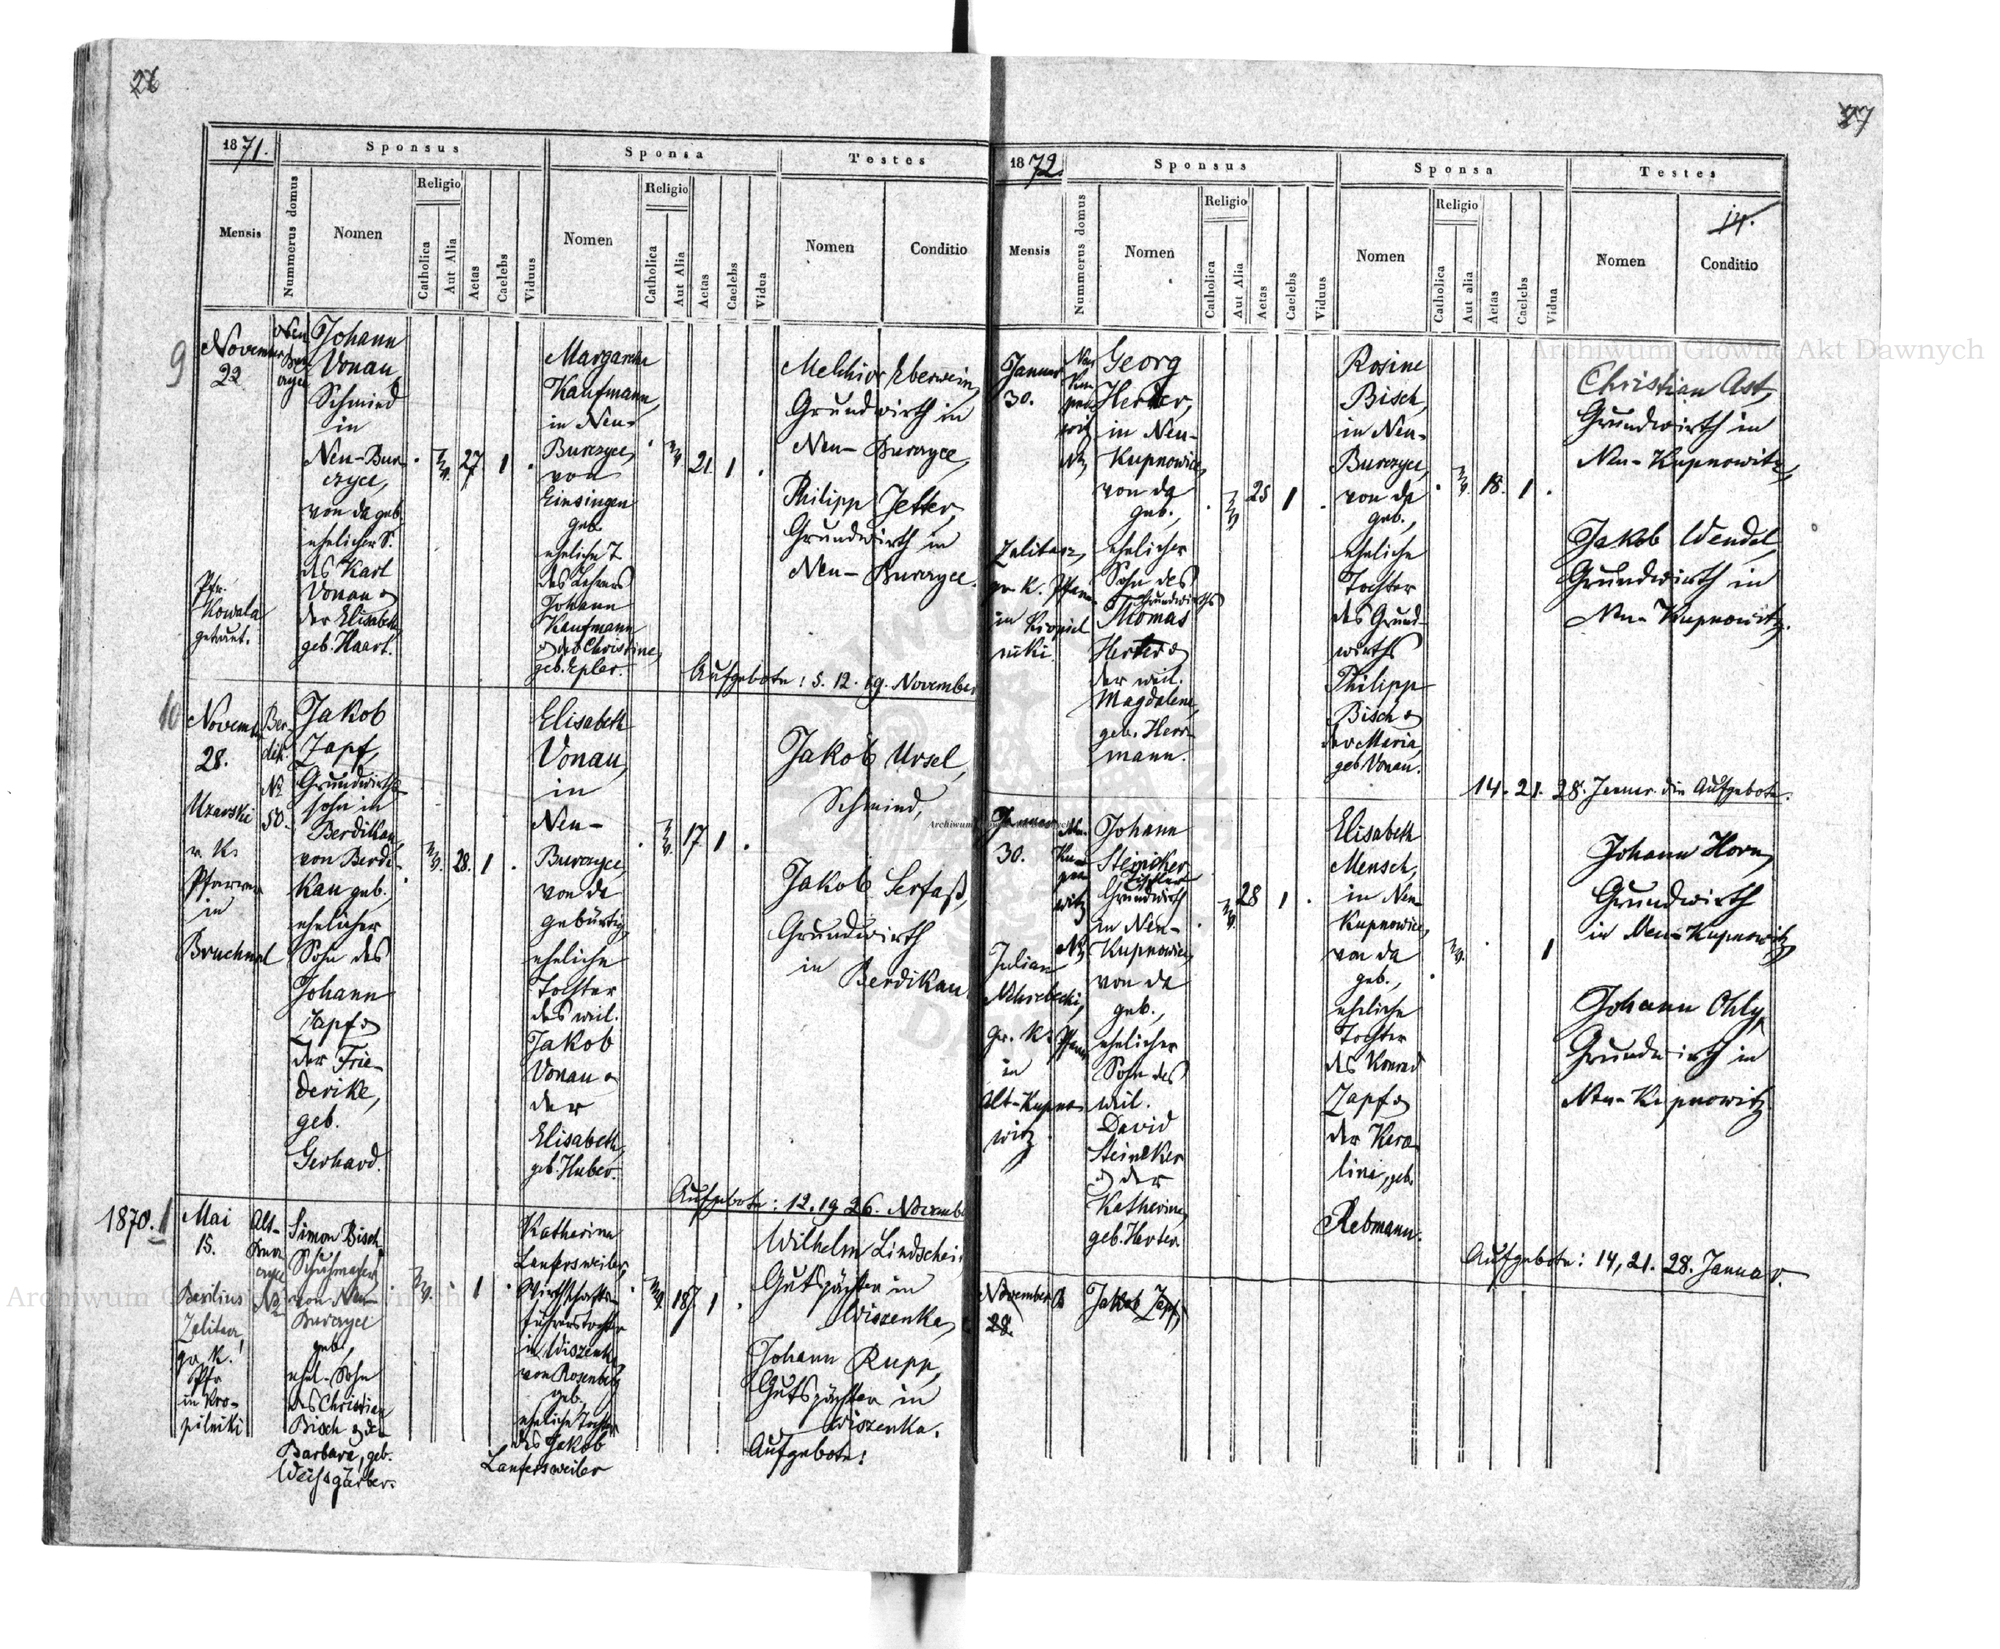 26
1871.
Sponsus
Sponsa
Testes
Mensis
Nummerus domus
Nomen
Religio
Catholica
Aut Alia
Aetas
Caelebs
Viduus
Nomen
Religio
Catholica
Aut Alia
Aetas
Caelebs
Vidua
Nomen
Conditio
9
November
22
Pfr.
Kowala
getraut.
Johann
Vonau,
Schmied
in
Neu-Bur-
czyce,
von da geb.
ehelicher S.
des Karl
Vonau &
der Elisabeth
geb. Haart.
ev.
27
1
Margarethe
Kaufmann,
in Neu-
Burczyce,
von
Einsingen
geb.
eheliche T.
des Lehrers
Johann
Kaufmann
& der Christine,
geb. Epler.
ev.
21
1
Melchior Eberwein,
Grundwirth in
Neu-Burczyce,
Philipp Jetter,
Grundwirth in
Neu-Burczyce.
Aufgebote: 5. 12. 19. November
10
November
28.
Uzarski
r. K.
Pfarrer
in
Bruchnal
Ber-
dik.
No
50.
Jakob
Zapf,
Grundwirths-
sohn in
Berdikau,
von Berdi-
kau geb.,
ehelicher
Sohn des
Johann
Zapf &
der Frie-
derike,
geb.
Gerhard.
ev.
28.
1
Elisabeth
Vonau,
in
Neu-
Burczyce,
von da
gebürtig,
eheliche
Tochter
des weil.
Jakob
Vonau &
der
Elisabeth,
geb. Huber.
ev.
17
1
Jakob Ursel,
Schmied,
Jakob Serfaß,
Grundwirth
in
Berdikau
Aufgebote: 12. 19 26. Novemb
1870. 1
Mai
15.
Basilius
Zelitacz,
gr. K.
Pfr
in Kro-
pilniki
Alt-
Burc
czyce
No
Simon Bisch
Schuhmacher
von Neu-
Burczyce
geb.,
ehel. Sohn
des Christian
Bisch & der
Barbara, geb.
Weißgärber.
ev.
1
Katharina
Laufersweiler,
Wirthschafts-
führerstochter
in Wiszenka
von Rosenberg
geb.,
eheliche Tochter
des Jakob
Laufersweiler
ev.
187
1
Wilhelm Lindschei
Gutspächter in
Wiszenka,
Johann Rupp,
Gutspächter in
Wiszenka.
Aufgebote:
27
1872.
Sponsus
Sponsa
Testes
Mensis
Nummerus domus
Nomen
Religio
Catholica
Aut Alia
Aetas
Caelebs
Viduus
Nomen
Religio
Catholica
Aut alia
Aetas
Caelebs
Vidua
Nomen
Conditio
14.
Januar
30.
Zelitacz,
gr. K. Pfarr
in Kropiel
niki.
Neu
Kup
now
witz
No
Georg
Herter,
in Neu-
Kupnowice,
von da
geb.,
ehelicher
Sohn des
Grundwirths
Thomas
Herter &
der weil.
Magdalena,
geb. Herr-
mann.
ev.
25
1
Rosine
Bisch,
in Neu-
Burczyce,
von da
geb.,
eheliche
Tochter
des Grund-
wirths
Philipp
Bisch &
der Maria,
geb Vonau.
ev.
18.
1
Christian Ast,
Grundwirth in
Neu-Kupnowitz,
Jakob Wendel,
Grundwirth in
Neu-Kupnowitz.
14. 21. 28. Jenner die Aufgebote.
Januar
30.
Julian
gr. K. Pfarr
in
Alt-Kupno
witz
Neu-
Kup-
now
witz
No
Johann
Steinicker
Tischler
Grundwirth
in Neu-
Kupnowice,
von da
geb.,
ehelicher
Sohn des
weil.
David
Steincker
& der
Katharina,
geb. Herter.
ev.
28
1
Elisabeth
Mensch,
in Neu-
Kupnowice,
von da
geb.,
eheliche
Tochter
des Konrad
Zapf &
der Karo-
line, geb.
Rebmann.
ev.
1
Johann Horn,
Grundwirth
in Neu-Kupnowitz,
Johann Ohly,
Grundwirth in
Neu-Kupnowitz.
Aufgebote: 14, 21. 28. Januar.
November
28.
Jakob Zapf,
Archiwum Główne Akt Dawnych
Archiwum Główne Akt Dawnych
Archiwum Główne Akt Dawnych